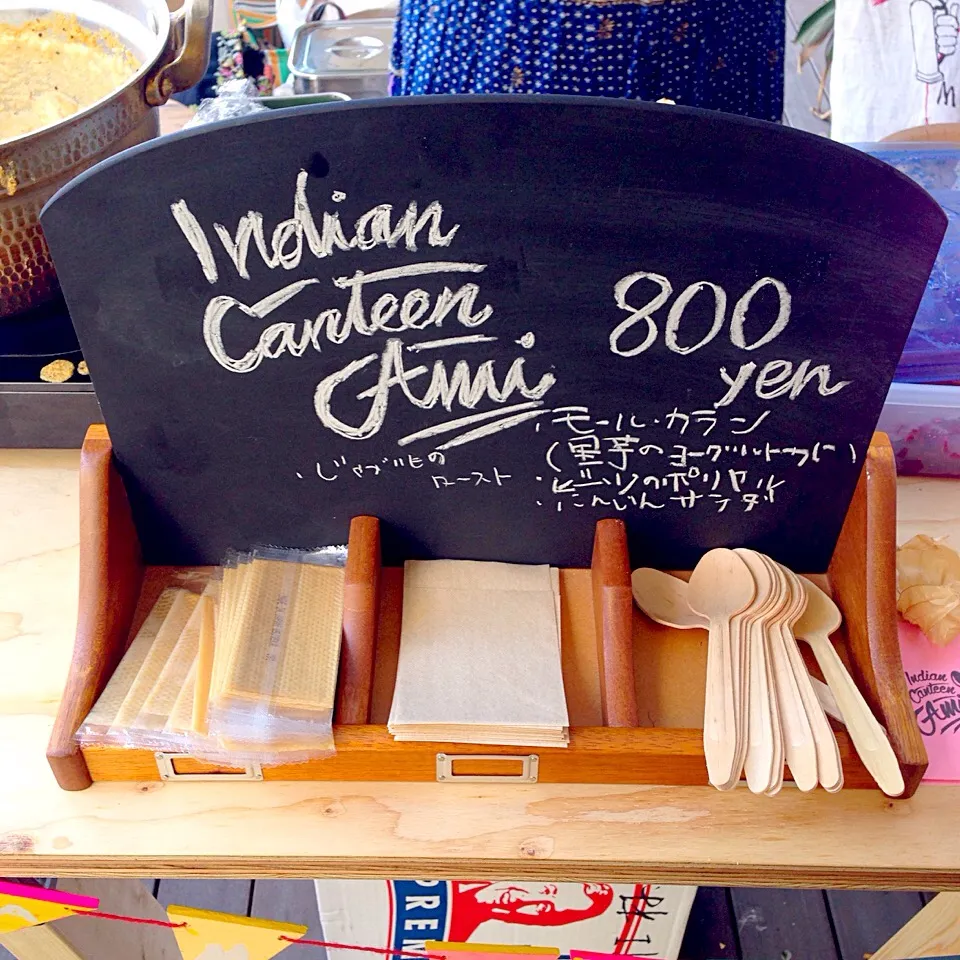 Indian
Canteen
Ami
800
yen
・モール・カラン
(里芋のヨーグルトカレー)
・じゃがいもの
ロースト
・ビーツのポリヤル
・にんじんサラダ
Indian
Canteen
Ami